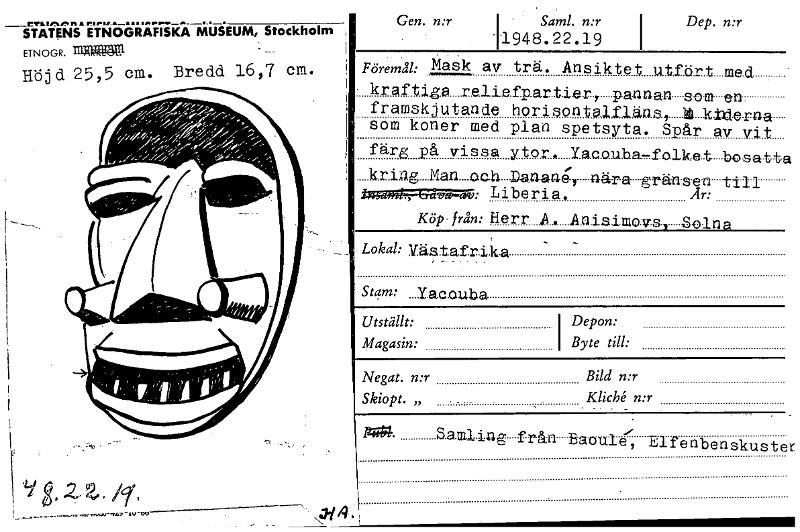 STATENS ETNOGRAFISKA MUSEUM, Stockholm
ETNOGR.
Höjd 25,5 cm. Bredd 16,7 cm.
48.22.19.
HA.
Gen. n:r Saml. n:r Dep. n:r
1948.22.19
Föremål: Mask av trä. Ansiktet utfört med
kraftiga reliefpartier, pannan som en
framskjutande horisontalfläns, kinderna
som koner med plan spetsyta. Spår av vit
färg på vissa ytor. Yacouba-folket bosatta
kring Man och Danané, nära gränsen till
Insaml., Gåva av: Liberia. År:
Köp från: Herr A. Anisimovs, Solna
Lokal: Västafrika
Stam: Yacouba
Utställt: Depon:
Magasin: Byte till:
Negat. n:r Bild n:r
Skiopt. „ Kliché n:r
Publ. Samling från Baoulé, Elfenbenskusten